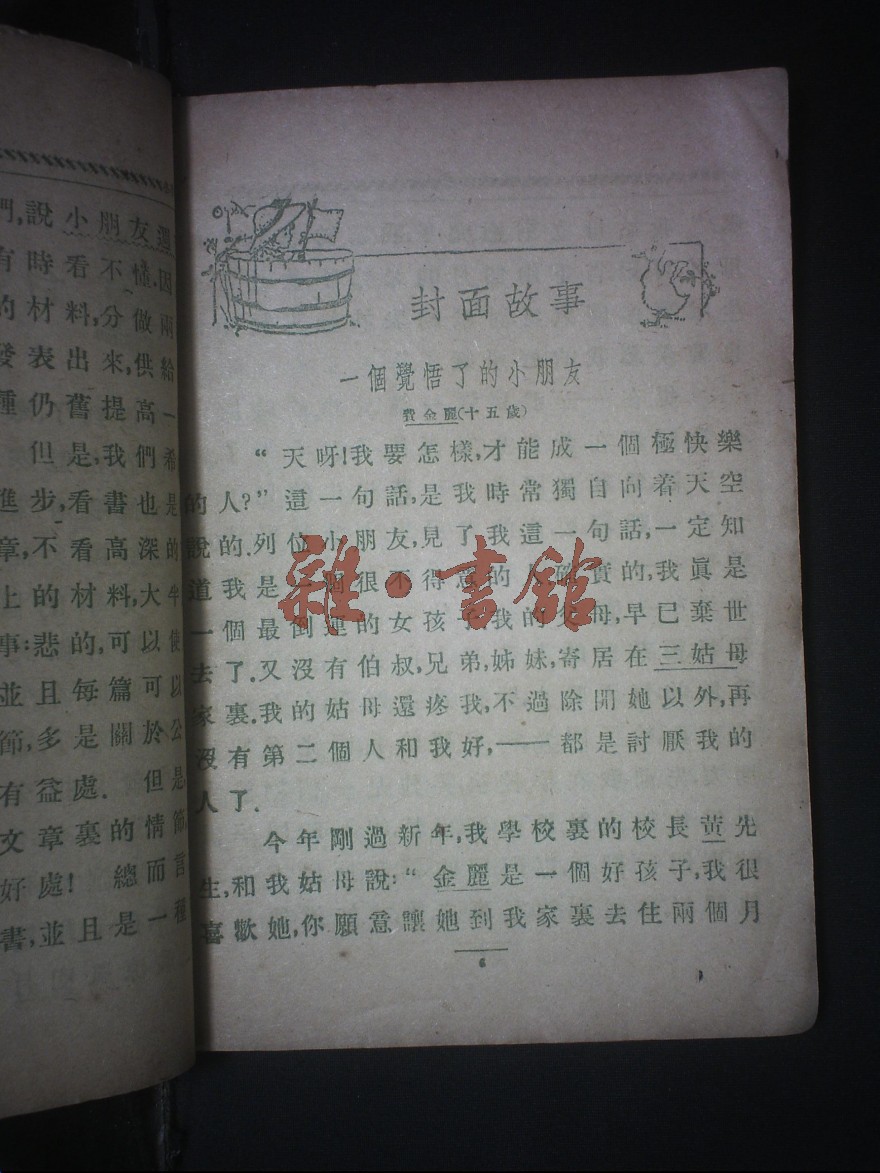 們,說小朋友週
有時看不懂.因
的材料,分做兩
發表出來,供給
種仍舊提高一
但是,我們希
進步,看書也是
章,不看高深的
上的材料,大半
事:悲的,可以使
並且每篇可以
節,多是關於公
有益處. 但是,
文章裏的情節
好處! 總而言
書,並且是一種
封面故事
一個覺悟了的小朋友
費金麗(十五歲)
“天呀!我要怎樣,才能成一個極快樂
的人?”這一句話,是我時常獨自向着天空
說的.列位小朋友,見了我這一句話,一定知
道我是一個很不得意的人確實的,我眞是
一個最倒運的女孩子我的父母,早已棄世
去了.又沒有伯叔,兄弟,姊妹,寄居在三姑母
家裏.我的姑母還疼我,不過除開她以外,再
沒有第二個人和我好,——都是討厭我的
人了.
今年剛過新年,我學校裏的校長黃先
生,和我姑母說:“金麗是一個好孩子,我很
喜歡她,你願意讓她到我家裏去住兩個月
6
雜·書館